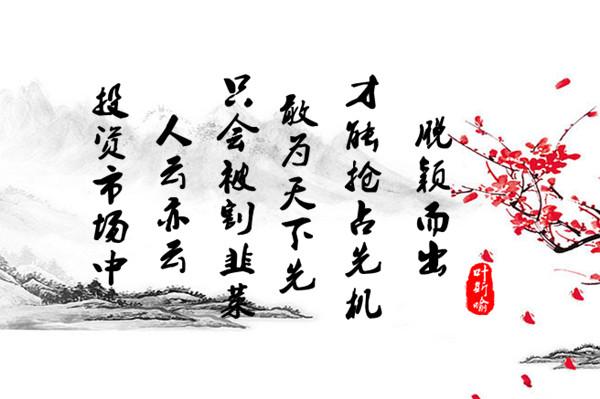 投资市场中
人云亦云
只会被割韭菜
敢为天下先
才能抢占先机
脱颖而出